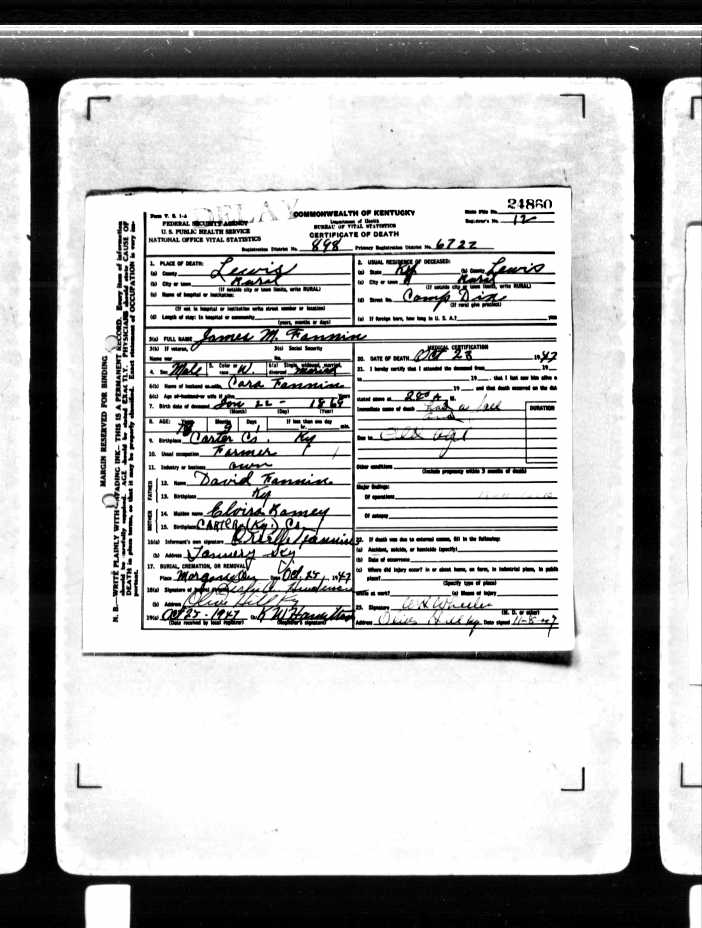 DELAY
24860
Form V. S. 1-A
FEDERAL SECURITY AGENCY
U. S. PUBLIC HEALTH SERVICE
NATIONAL OFFICE VITAL STATISTICS
COMMONWEALTH OF KENTUCKY
Department of Health
BUREAU OF VITAL STATISTICS
CERTIFICATE OF DEATH
State File No.
Registrar's No. 12
Registration District No. 898 Primary Registration District No. 6722
MARGIN RESERVED FOR BINDING
1. PLACE OF DEATH:
(a) County Lewis
(b) City or town Rural
(If outside city or town limits, write RURAL)
(c) Name of hospital or institution:
(If not in hospital or institution write street number or location)
(d) Length of stay: In hospital or community
(years, months or days)
2. USUAL RESIDENCE OF DECEASED:
(a) State Ky (b) County Lewis
(c) City or town Rural
(If outside city or town limits, write RURAL)
(d) Street No. Camp Dix
(If rural give precinct)
(e) If foreign born, how long in U. S. A.? years
3(a) FULL NAME James M. Fannin
3(b) If veteran, 3(c) Social Security
Name war No.
4. Sex Male 5. Color or race W. 6(a) Single, widowed, married, divorced
6(b) Name of husband or wife Cora Fannin
6(c) Age of husband or wife if alive Years
7. Birth date of deceased 22 - 1869
(Month) (Day) (Year)
8. AGE: Years Months Days If less than one day
78 9 hr. min.
9. Birthplace Carter Co. Ky
10. Usual occupation Farmer
11. Industry or business own
FATHER
12. Name David Fannin
13. Birthplace Ky
MOTHER
14. Maiden name Ramey
15. Birthplace CARTER (Ky) Co.
16(a) Informant's own signature Fannin
(b) Address Tannery Ky
17. BURIAL, CREMATION, OR REMOVAL
Place Date Oct. 25, 1947
18(a) Signature of funeral director
(b) Address Olive Hill Ky
19(a) Oct 25-1947 (b)
(Date received by local registrar) (Registrar's signature)
MEDICAL CERTIFICATION
20. DATE OF DEATH Oct 23 1947
21. I hereby certify that I attended the deceased from 19
to 19 , that I last saw him alive o
19 and that death occurred on the dat
stated above at M.
Immediate cause of death DURATION
Due to Old age
Other conditions
(Include pregnancy within 3 months of death)
Major findings:
Of operations
Of autopsy
22. If death was due to external causes, fill in the following:
(a) Accident, suicide, or homicide (specify)
(b) Date of occurrence
(c) Where did injury occur? in or about home, on farm, in industrial place, in public
place?
(Specify type of place)
While at work? (e) Means of injury
23. Signature
(M. D. or other)
Address Olive Hill Ky Date signed 11-8-47